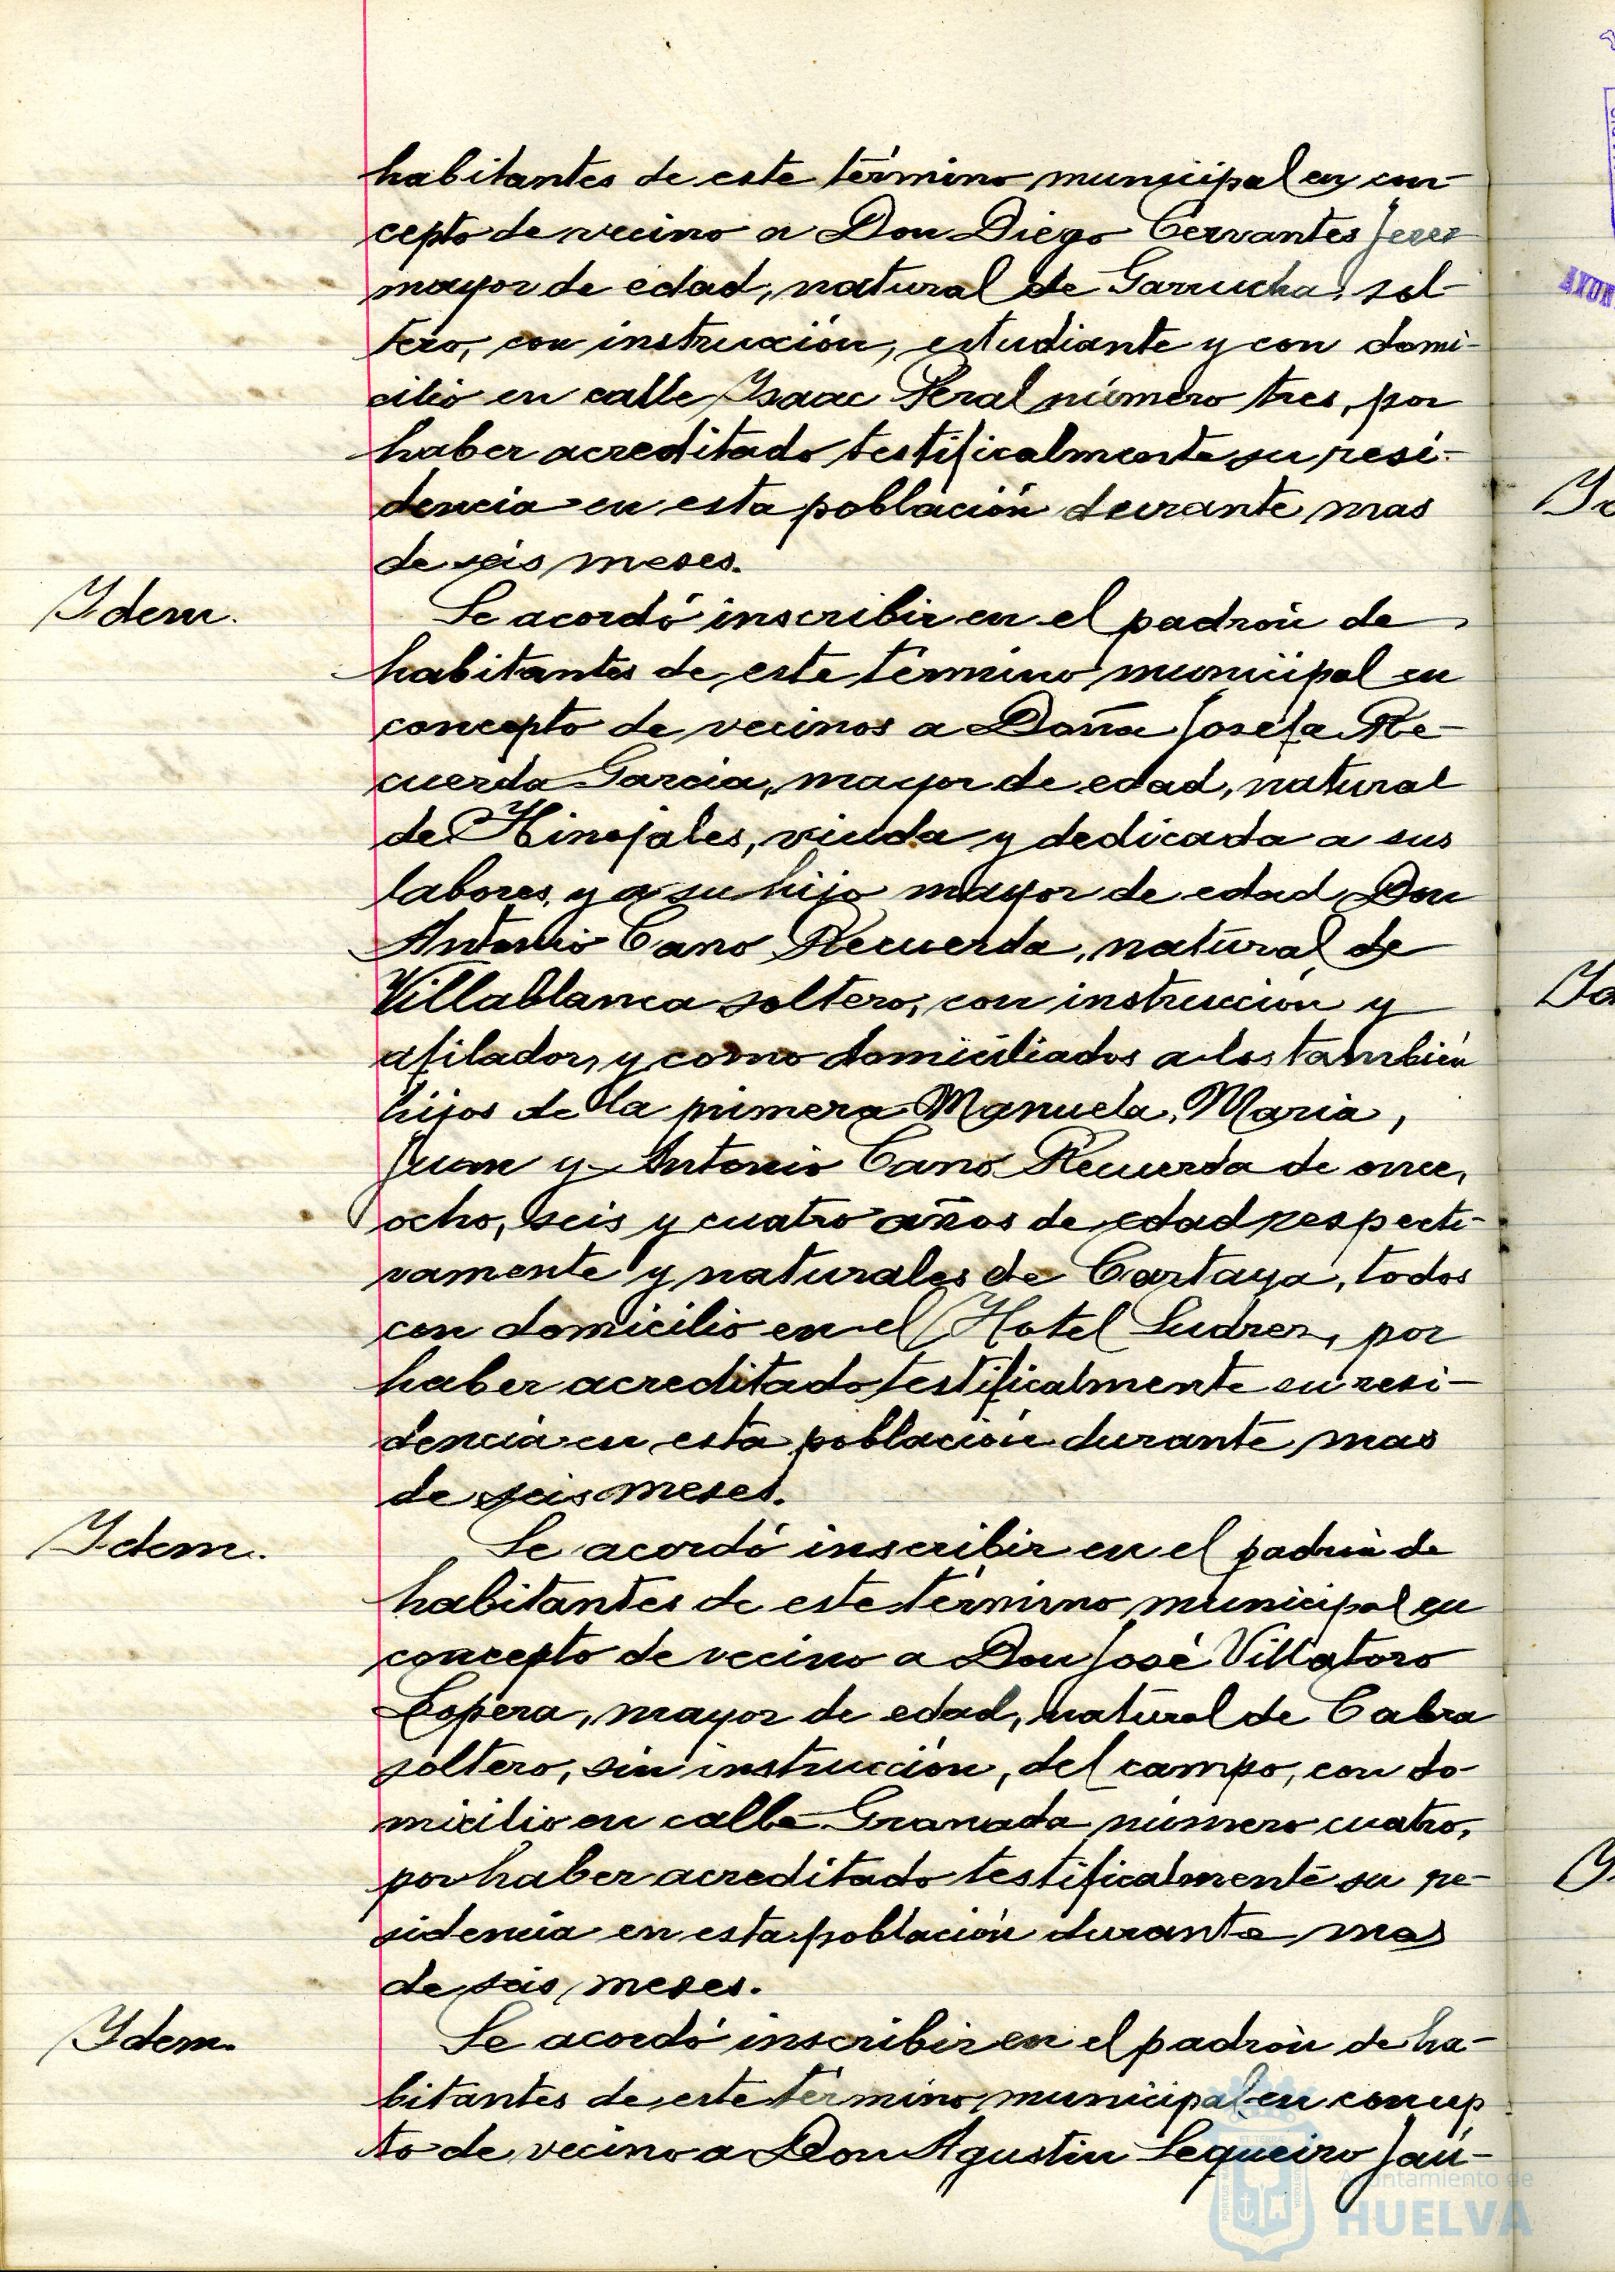 habitantes de este término municipal en con-
cepto de vecino a Don Diego Cervantes Jerez
mayor de edad, natural de Garrucha, sol-
tero, con instrucción, estudiante y con domi-
cilio en calle Isaac Peral número tres, por
haber acreditado testificalmente su resi-
dencia en esta población durante mas
de seis meses.
Idem.
Se acordó inscribir en el padrón de
habitantes de este término municipal en
concepto de vecinos a Doña Josefa Re-
cuerda Garcia, mayor de edad, natural
de Hinojales, viuda y dedicada a sus
labores, y a su hijo mayor de edad Don
Antonio Cano Recuerda, natural de
Villablanca soltero, con instrucción y
afilador, y como domiciliados a los también
hijos de la primera Manuela, Maria,
Juan y Antonio Cano Recuerda de once,
ocho, seis y cuatro años de edad respecti-
vamente y naturales de Cartaya, todos
con domicilio en el Hotel Sudrez, por
haber acreditado testificalmente su resi-
dencia en esta población durante mas
de seis meses.
Idem.
Se acordó inscribir en el padrón de
habitantes de este término municipal en
concepto de vecino a Don José Villatoro
Espera, mayor de edad, natural de Cabra
soltero, sin instrucción, del campo, con do
micilio en calle Granada número cuatro,
por haber acreditado testificalmente su re-
sidencia en esta población durante mas
de seis meses.
Idem.
Se acordó inscribir en el padrón de ha-
bitantes de este término municipal en concep
to de vecino a Don Agustin Sequeiro Jau-
Ayuntamiento de
HUELVA